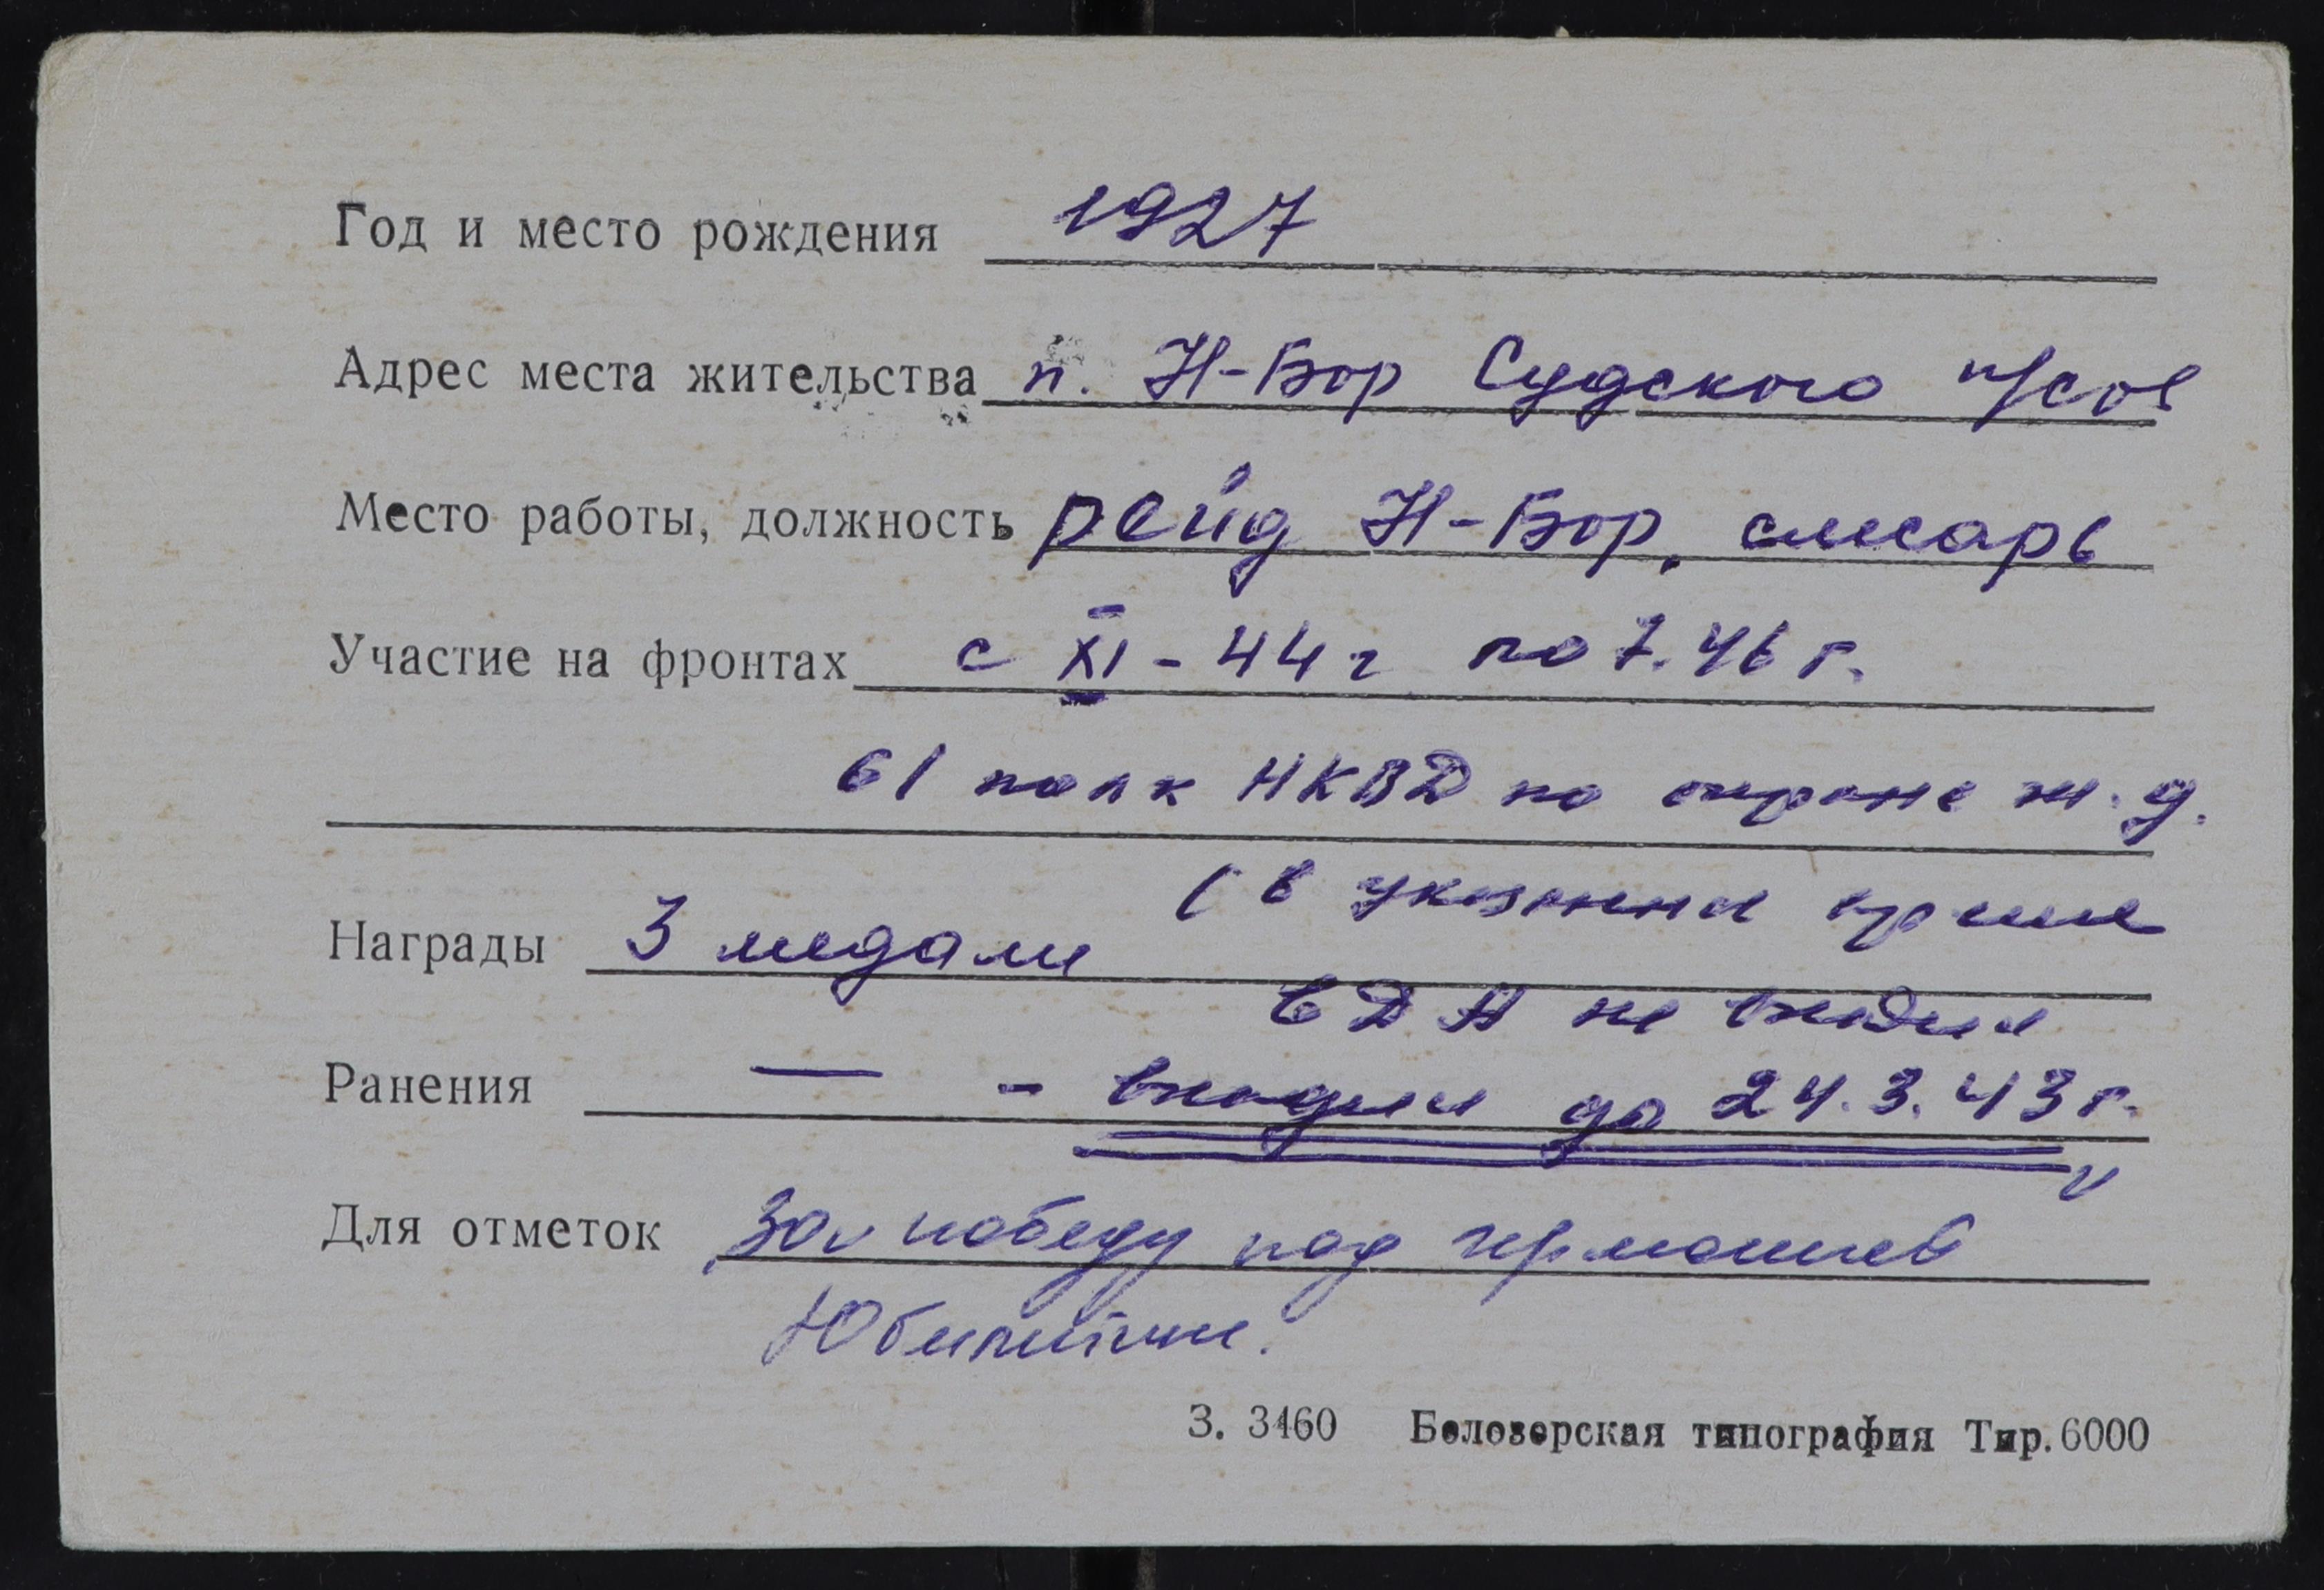 Год и место рождения 1927
Адрес места жительства п. Н-Бор Судского п/сов
Место работы, должность рейд Н-Бор, слесарь
Участие на фронтах с XI-44г по 7.46 г.
61 полк НКВД по охране ж.д.
(в указанное время
Награды 3 медали
в ДА не входил
Ранения — - входил до 24.3.43 г.
Для отметок За победу над Германией
Юбилейные.
З. 3460 Белозерская типография Тир. 6000